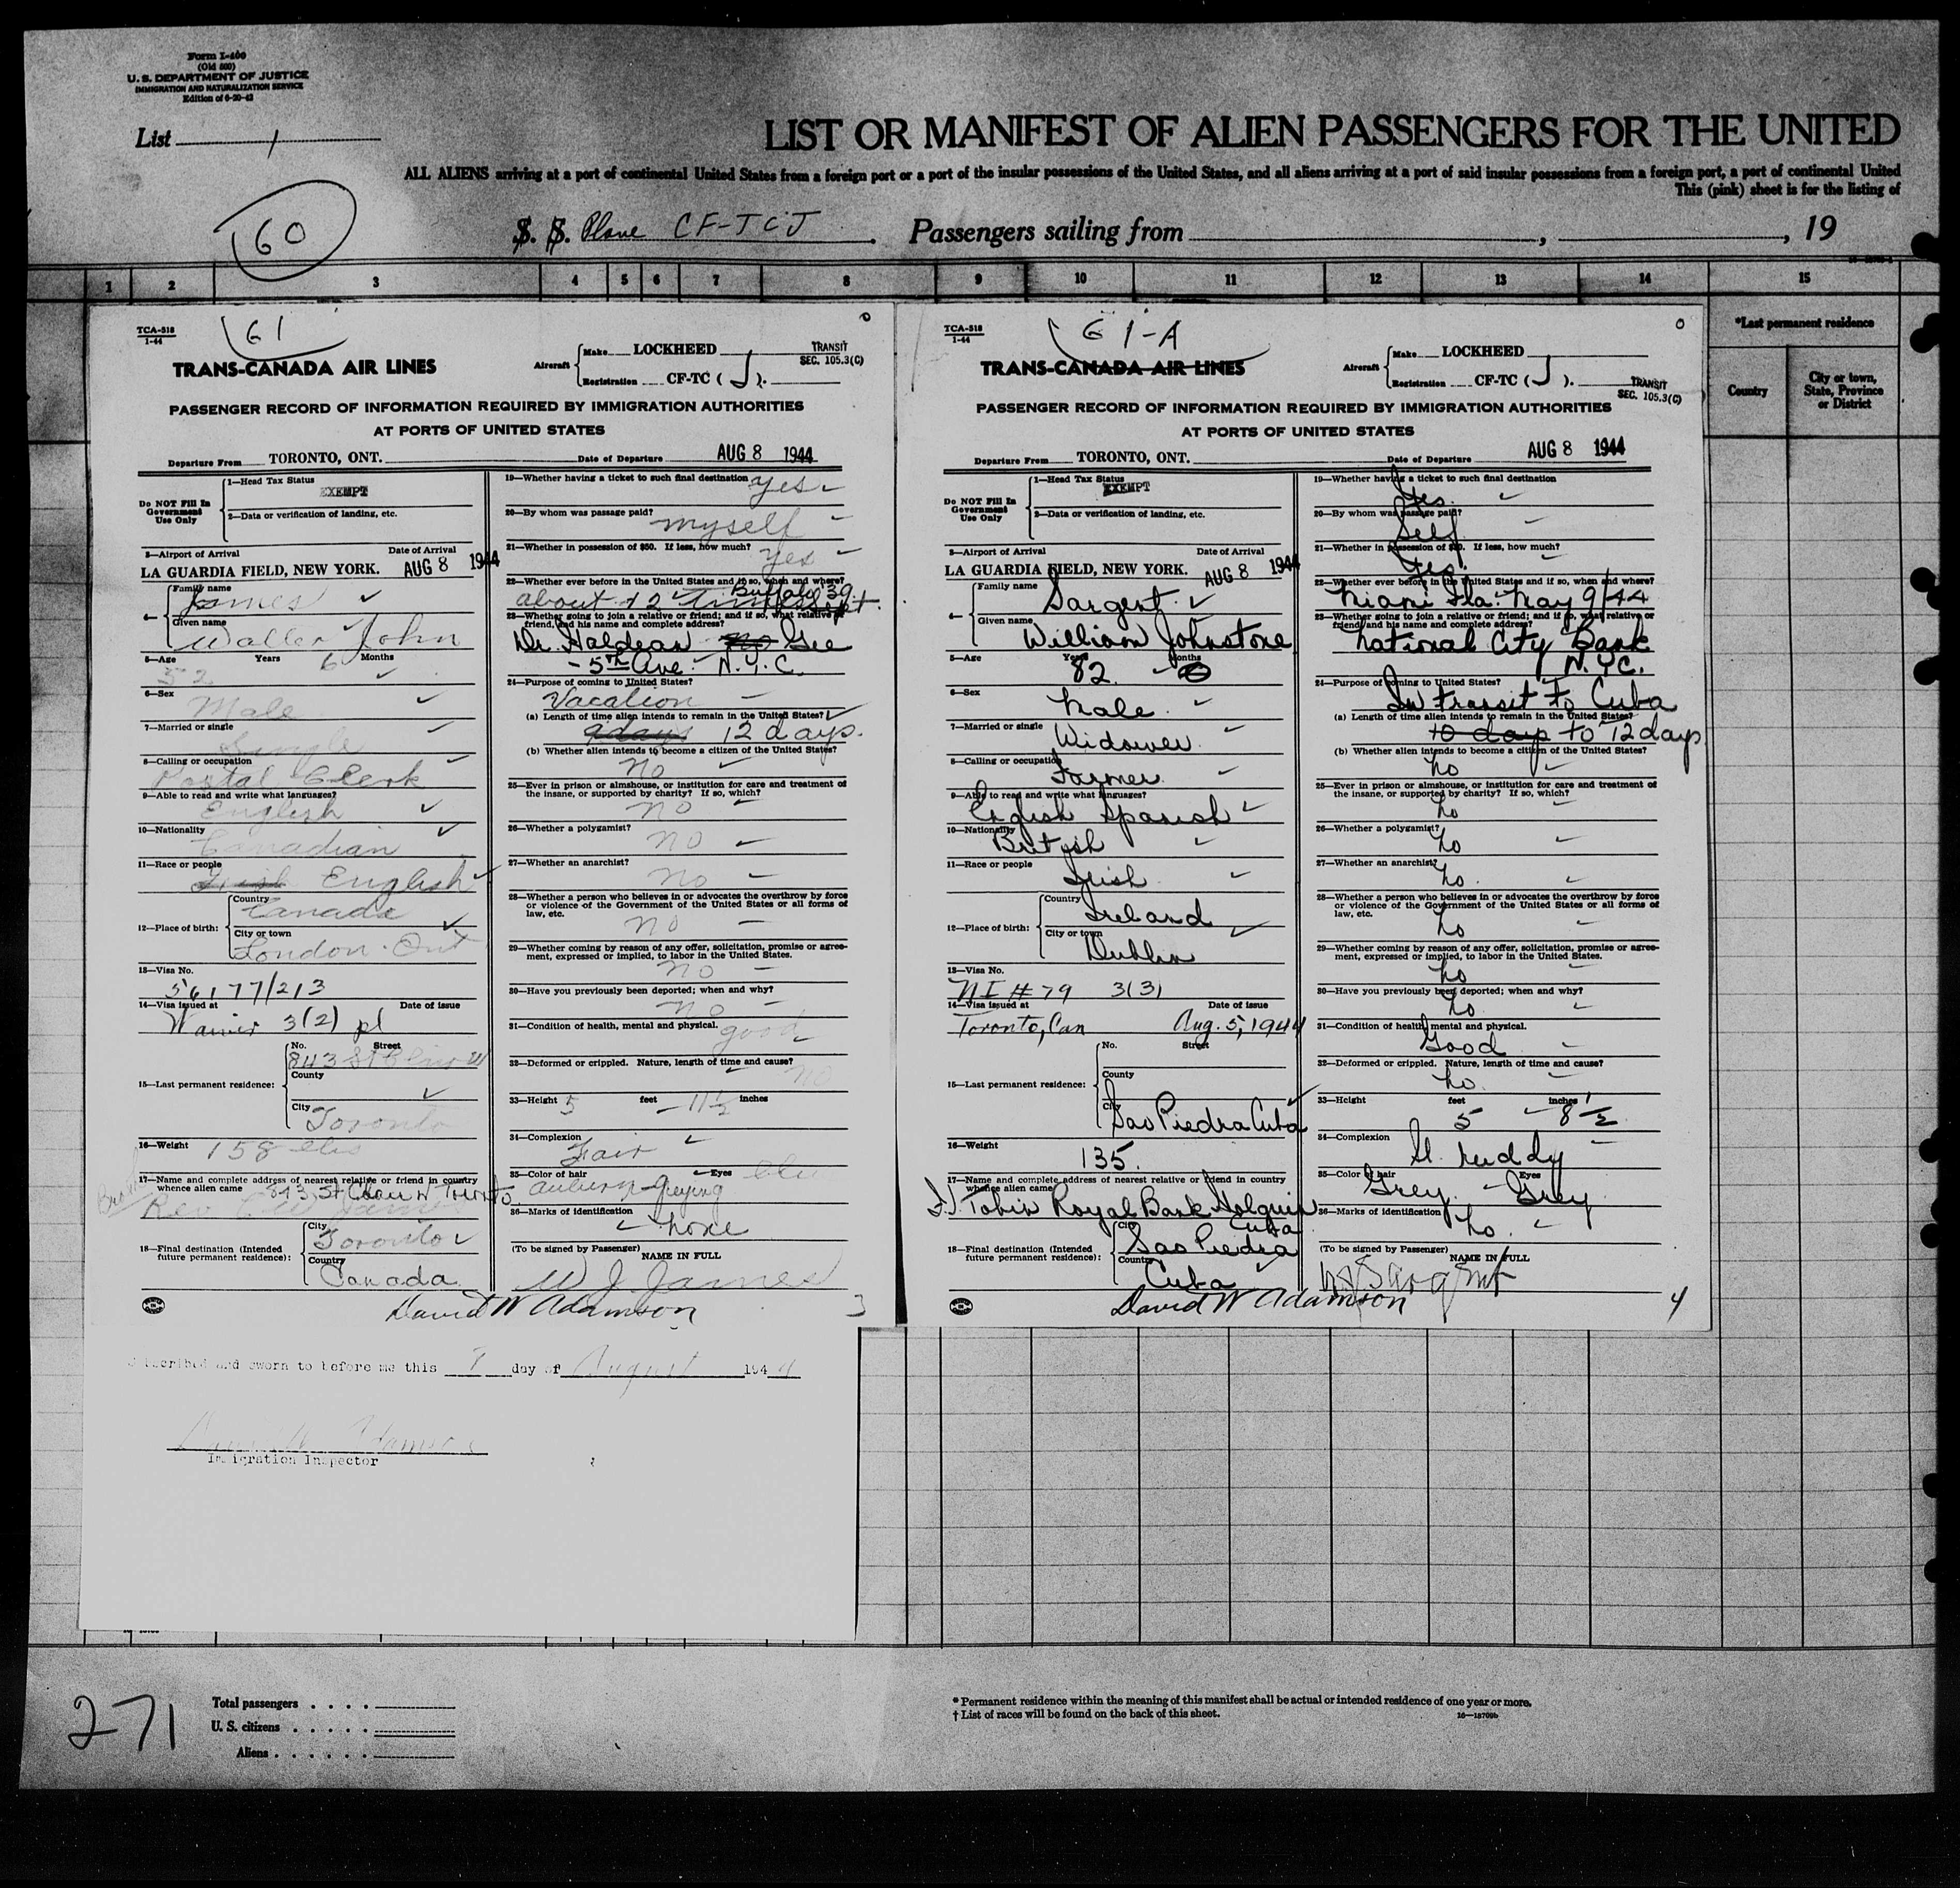 Form I-400
(Old 500)
U. S. DEPARTMENT OF JUSTICE
IMMIGRATION AND NATURALIZATION SERVICE
Edition of 6-20-42
List 1
LIST OR MANIFEST OF ALIEN PASSENGERS FOR THE UNITED
ALL ALIENS arriving at a port of continental United States from a foreign port or a port of the insular possessions of the United States, and all aliens arriving at a port of said insular possessions from a foreign port, a port of continental United
This (pink) sheet is for the listing of
60
S. S. Plane CF-TCJ. Passengers sailing from , , 19
1 2 3 4 5 6 7 8 9 10 11 12 13 14 15
*Last permanent residence
Country
City or town, State, Province or District
TCA-518
1-44
61
TRANS-CANADA AIR LINES
Aircraft
Make LOCKHEED
Registration CF-TC ( J ).
TRANSIT
SEC. 105.3(C)
PASSENGER RECORD OF INFORMATION REQUIRED BY IMMIGRATION AUTHORITIES
AT PORTS OF UNITED STATES
Departure From TORONTO, ONT. Date of Departure AUG 8 1944
Do NOT Fill In Government Use Only
1—Head Tax Status
EXEMPT
2—Data or verification of landing, etc.
3—Airport of Arrival Date of Arrival
LA GUARDIA FIELD, NEW YORK. AUG 8 1944
4—
Family name
James
Given name
Walter John
5—Age Years Months
32 6
6—Sex
Male
7—Married or single
Single
8—Calling or occupation
Postal Clerk
9—Able to read and write what languages?
English
10—Nationality
Canadian
11—Race or people
English
12—Place of birth:
Country
Canada
City or town
London Ont
13—Visa No.
56177/213
14—Visa issued at Date of issue
3(2) pl
15—Last permanent residence:
No. Street
843 St
County
City
Toronto
16—Weight 158 lbs
17—Name and complete address of nearest relative or friend in country whence alien came
843 St Clair W Toronto
Rev James
18—Final destination (Intended future permanent residence):
City
Toronto
Country
Canada
19—Whether having a ticket to such final destination
yes
20—By whom was passage paid?
myself
21—Whether in possession of $50. If less, how much?
yes
22—Whether ever before in the United States and if so, when and where?
about 12 times Buffalo 39
23—Whether going to join a relative or friend; and if so, what relative or friend, and his name and complete address?
Dr. Haldean no Gee
- 5th Ave. N.Y.C.
24—Purpose of coming to United States?
Vacation
(a) Length of time alien intends to remain in the United States?
9 days 12 days.
(b) Whether alien intends to become a citizen of the United States?
no
25—Ever in prison or almshouse, or institution for care and treatment of the insane, or supported by charity? If so, which?
no
26—Whether a polygamist?
no
27—Whether an anarchist?
no
28—Whether a person who believes in or advocates the overthrow by force or violence of the Government of the United States or all forms of law, etc.
no
29—Whether coming by reason of any offer, solicitation, promise or agreement, expressed or implied, to labor in the United States.
no
30—Have you previously been deported; when and why?
no
31—Condition of health, mental and physical.
good
32—Deformed or crippled. Nature, length of time and cause?
no
33—Height 5 feet 11½ inches
34—Complexion
Fair
35—Color of hair Eyes
auburn greying blu
36—Marks of identification
none
(To be signed by Passenger) NAME IN FULL
W J. James
David W Adamson
3
Subscribed and sworn to before me this 8 day of August 1944
David W Adamson
Immigration Inspector
TCA-518
1-44
61-A
TRANS-CANADA AIR LINES
Aircraft
Make LOCKHEED
Registration CF-TC ( J ).
TRANSIT
SEC. 105.3(C)
PASSENGER RECORD OF INFORMATION REQUIRED BY IMMIGRATION AUTHORITIES
AT PORTS OF UNITED STATES
Departure From TORONTO, ONT. Date of Departure AUG 8 1944
Do NOT Fill In Government Use Only
1—Head Tax Status
EXEMPT
2—Data or verification of landing, etc.
3—Airport of Arrival Date of Arrival
LA GUARDIA FIELD, NEW YORK. AUG 8 1944
4—
Family name
Sargent
Given name
William Johnstone
5—Age Years Months
82 - 0
6—Sex
Male
7—Married or single
Widower
8—Calling or occupation
Farmer
9—Able to read and write what languages?
English Spanish
10—Nationality
British
11—Race or people
Irish
12—Place of birth:
Country
Ireland
City or town
Dublin
13—Visa No.
NI # 79 3(3)
14—Visa issued at Date of issue
Toronto, Can Aug. 5, 1944
15—Last permanent residence:
No. Street
County
City
Sao Piedra Cuba
16—Weight
135.
17—Name and complete address of nearest relative or friend in country whence alien came
Tobin Royal Bank Holguin
Cuba
18—Final destination (Intended future permanent residence):
City
Sao Piedra
Country
Cuba
19—Whether having a ticket to such final destination
Yes.
20—By whom was passage paid?
Self
21—Whether in possession of $50. If less, how much?
Yes.
22—Whether ever before in the United States and if so, when and where?
Miami Fla. May 9/44
23—Whether going to join a relative or friend; and if so, what relative or friend, and his name and complete address?
National City Bank
N.Y.C.
24—Purpose of coming to United States?
In Transit To Cuba
(a) Length of time alien intends to remain in the United States?
10 days to 12 days
(b) Whether alien intends to become a citizen of the United States?
no
25—Ever in prison or almshouse, or institution for care and treatment of the insane, or supported by charity? If so, which?
no
26—Whether a polygamist?
no
27—Whether an anarchist?
no.
28—Whether a person who believes in or advocates the overthrow by force or violence of the Government of the United States or all forms of law, etc.
no
29—Whether coming by reason of any offer, solicitation, promise or agreement, expressed or implied, to labor in the United States.
no
30—Have you previously been deported; when and why?
no.
31—Condition of health, mental and physical.
Good
32—Deformed or crippled. Nature, length of time and cause?
no.
33—Height feet inches
5 - 8 ½
34—Complexion
Sl. ruddy
35—Color of hair Eyes
Grey - Grey
36—Marks of identification
no.
(To be signed by Passenger) NAME IN FULL
David W Adamson
4
271
Total passengers . . . .
U. S. citizens . . . . .
Aliens . . . . . .
* Permanent residence within the meaning of this manifest shall be actual or intended residence of one year or more.
† List of races will be found on the back of this sheet.
16—18709b